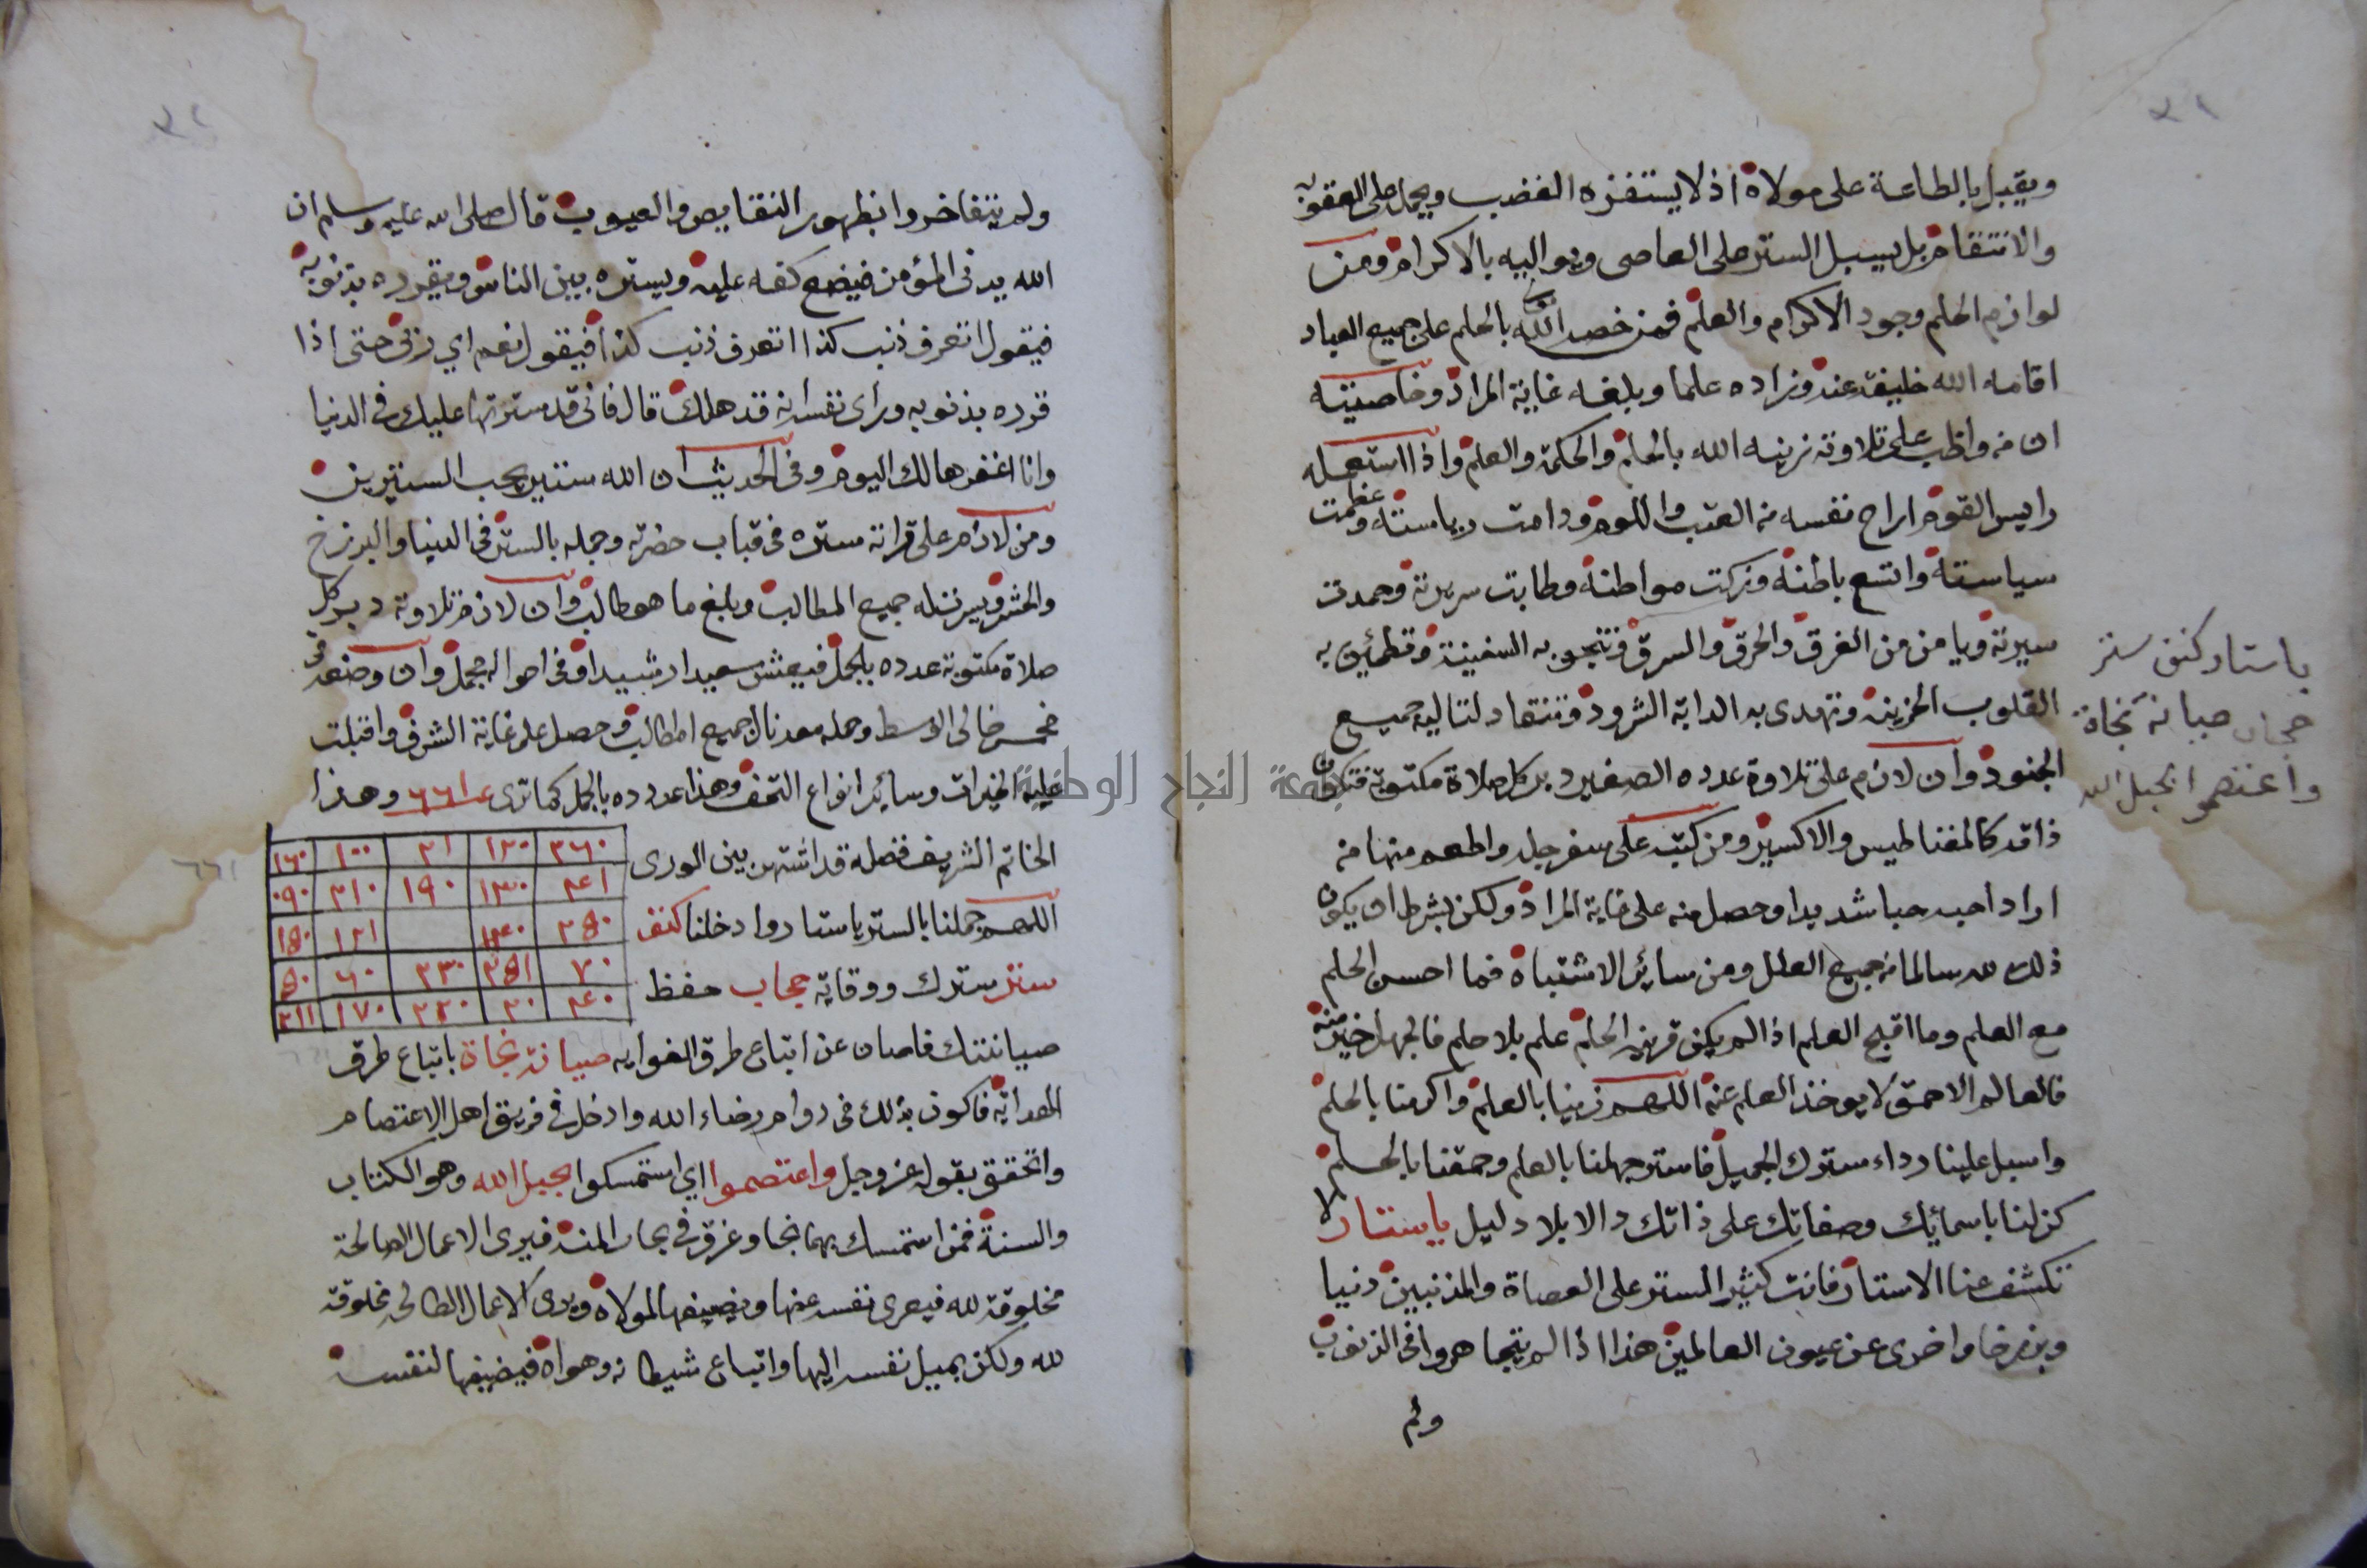 ٣١
ويقبل بالطاعة على مولاه اذ لا يستفزه الغضب ويحمل على العقوبة
والانتقام بل يسبل الستر على العاصى ويواليه بالاكرام ومن
لوازم الحلم وجود الاكرام والعلم فمن خصه الله بالحلم على جميع العباد
اقامه الله خليفة عنه وزاده علما وبلغه غاية المراد وخاصيته
ان من واظب على تلاوته زينه الله بالحلم والحكمة والعلم واذا استعمله
رايس القوم اراح نفسه من العتب واللوم ودامت رياسته وعظمت
سياسته واتسع باطنه وزكت مواطنه وطابت سريرته وحمدت
سيرته ويامن من الغرق والحرق والسرق وتنجو به السفينة وتطمئن به
القلوب الحزينه وتهدى به الدابة الشرود وتنقاد لتاليه جميع
الجنود وان لازم على تلاوة عدده الصغير دبر كل صلاة مكتوبة فتكون
ذاته كالمغناطيس والاكسير ومن كتبه على سفرجله واطعم منها من
اراد احبه حبا شديدا وحصل منه على غاية المراد ولكن بشرط ان يكون
ذلك لله سالما من جميع العلل ومن سائر الاشتباه فما احسن الحلم
مع العلم وما اقبح العلم اذا لم يكن قرينه الحلم علم بلا حلم فالجهل خير منه
فالعالم الاحمق لا يوخذ العلم عنه اللهم زينا بالعلم واكرمنا بالحلم
واسبل علينا رداء سترك الجميل فاستر جهلنا بالعلم وحمقنا بالحلم
كن لنا باسمائك وصفاتك على ذاتك دالا بلا دليل ياستار لا
تكشف عنا الاستار فانت كثير الستر على العصاة والمذنبين دنيا
وبرزخا واخرى عن عيون العالمين هذا اذا لم يتجاهروا فى الذنوب
ولم
ياستار كنف ستر
حجاب صيانة نجاة
واعتصموا بحبل الله
٣٢
ولم يتفاخروا بظهور النقايص والعيوب قال صلى الله عليه وسلم ان
الله يدنى المؤمن فيضع كنفه عليه ويستره بين الناس ويقرره بذنوبه
فيقول اتعرف ذنب كذا اتعرف ذنب كذا فيقول نعم اي ربى حتى اذا
قرره بذنوبه وراى نفسه انه قد هلك قال فانى قد سترتها عليك فى الدنيا
وانا اغفرها لك اليوم وفى الحديث ان الله ستير يحب الستيرين
ومن لازم على قراته ستره فى قباب حضرته وجمله بالستر فى الدنيا والبرزخ
والحشر ويسرت له جميع المطالب وبلغ ما هو طالب وان لازم تلاوته دبر كل
صلاة مكتوبة عدده بالجمل فيعش سعيدا رشيدا وفى احواله مجمل وان وضعه فى
مخمس خالى الوسط وحمله معه نال جميع المطالب وحصل على غاية الشرف واقبلت
عليه الخيرات وسائر انواع التحف وهذا عدده بالجمل كما ترى عدد ٦٦١ وهذا
الخاتم الشريف فضله قد اشتهر بين الورى
اللهم جملنا بالستر ياستار وادخلنا كنف
ستر سترك ووقاية حجاب حفظ
٣٦٠ ١٢٠ ٣١ ١٠٠ ١٦٠
٢٤١ ١٣٠ ١٩٠ ٢١٠ ٠٩٠
٢٥٠ ١٤٠ ١٢١ ١٥٠
٧٠ ٢٥١ ٢٣٠ ٦٠ ٥٠
٢٤٠ ٢٠ ٢٢٠ ١٧٠ ٢١١
٦٦١
صيانتك فاصان عن اتباع طرق الغوايه صيانة نجاة باتباع طرق
الهداية فاكون بذلك فى دوام رضاء الله وادخل فى فريق اهل الاعتصام
واتحقق بقوله عز وجل واعتصموا اي استمسكوا بحبل الله وهو الكتاب
والسنة فمن استمسك بهما نجا وغرق فى بحار المنه فيرى الاعمال الصالحة
مخلوقة لله فيعرى نفسه عنها ويضيفها لمولاه ويرى الاعمال الطالحه مخلوقة
لله ولكن بميل نفسه اليها واتباع شيطانه وهواه فيضيفها لنفسه
جامعة النجاح الوطنية